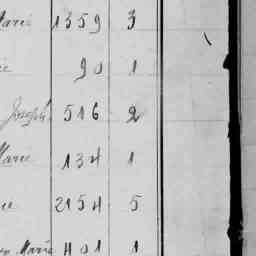 Marie 1359 3
90 1
Joseph 516 2
Marie 134 1
2154 5
Marie 401 1